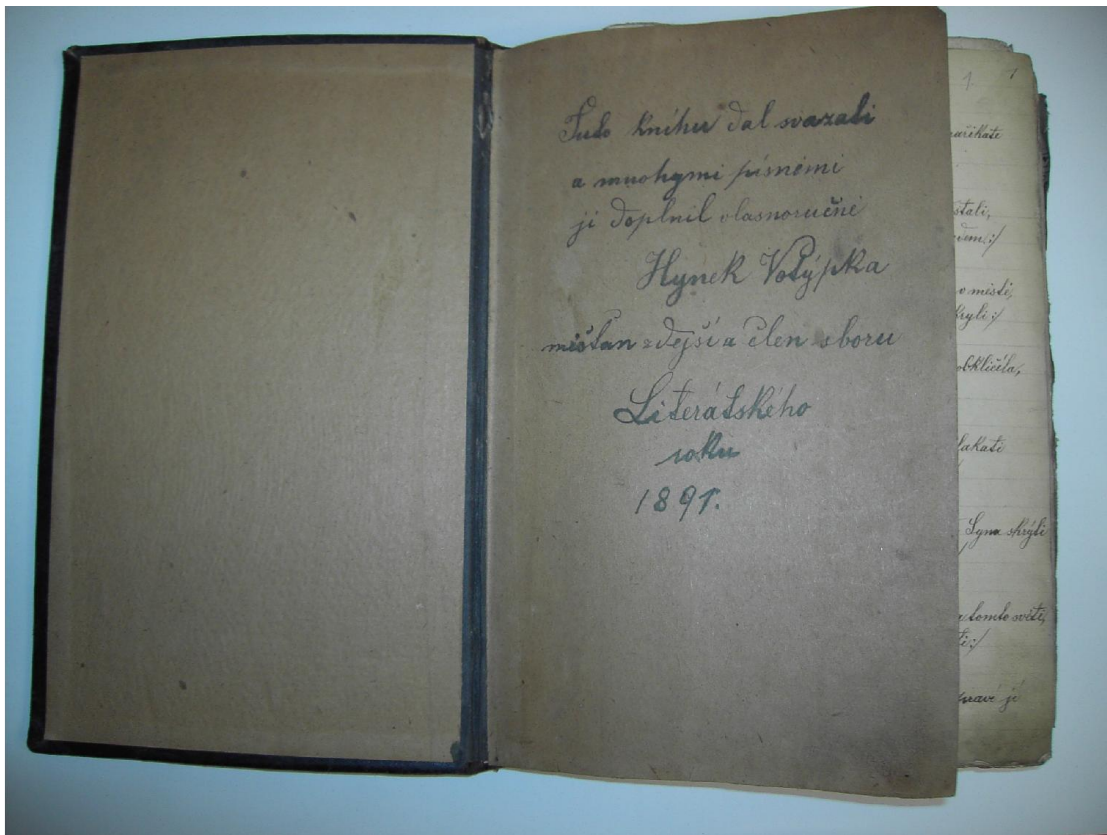 Tuto knihu dal svazati
a mnohymi písněmi
ji doplnil vlasnoručně
Hynek Votýpka
měšťan zdejší a člen sboru
Literátského
roku
1891.
1
ařikati
stali,
o místě,
kryli :/
obkličila,
lakati
Syna skrýti
tomto světě,
praví jí